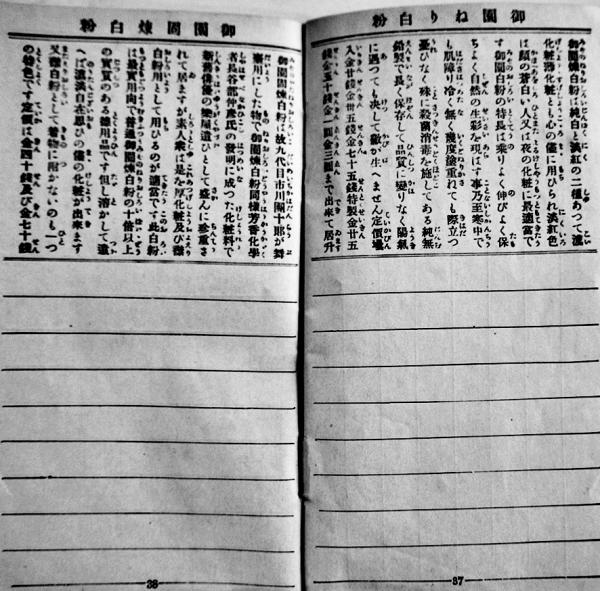 御園ねり白粉
御園煉白粉は純白と淡紅の二種あつて濃
化粧淡化粧とも心の儘に用ひられ淡紅色
は顔の蒼白い人又は夜の化粧に最適當で
す御園白粉の特長は乘りよく伸びよく保
ちよく自然の生彩を現はす事乃至寒中で
も肌障り無く幾度塗重ねても際立つ
憂ひなく殊に殺菌消毒を施してある純無
鉛製で長く保存して品質に變りなく陽氣
に遇つても決して黴が生へません定價壜
入金廿錢金卅五錢金七十五錢特製金廿五
錢金五十錢金一圓金三圓まで出來て居升
37
御園固煉白粉
御園固煉白粉は故九代目市川團十郎が舞
臺用にした物で御園煉白粉同樣芳香化學
者長谷部仲彦氏の發明に成つた化粧料で
新舊俳優の樂屋遣ひとして盛んに珍重さ
れて居ますが素人衆は是を厚化粧及び襟
白粉用として用ひるのが適當です此白粉
は最實用向で普通御園煉白粉の十倍以上
の實質のある徳用品です但し溶かして遣
へば濃淡自在思ひの儘の化粧が出來ます
又襟白粉として着物に附かないのも一つ
の特色です定價は金四十錢及金七十錢
38